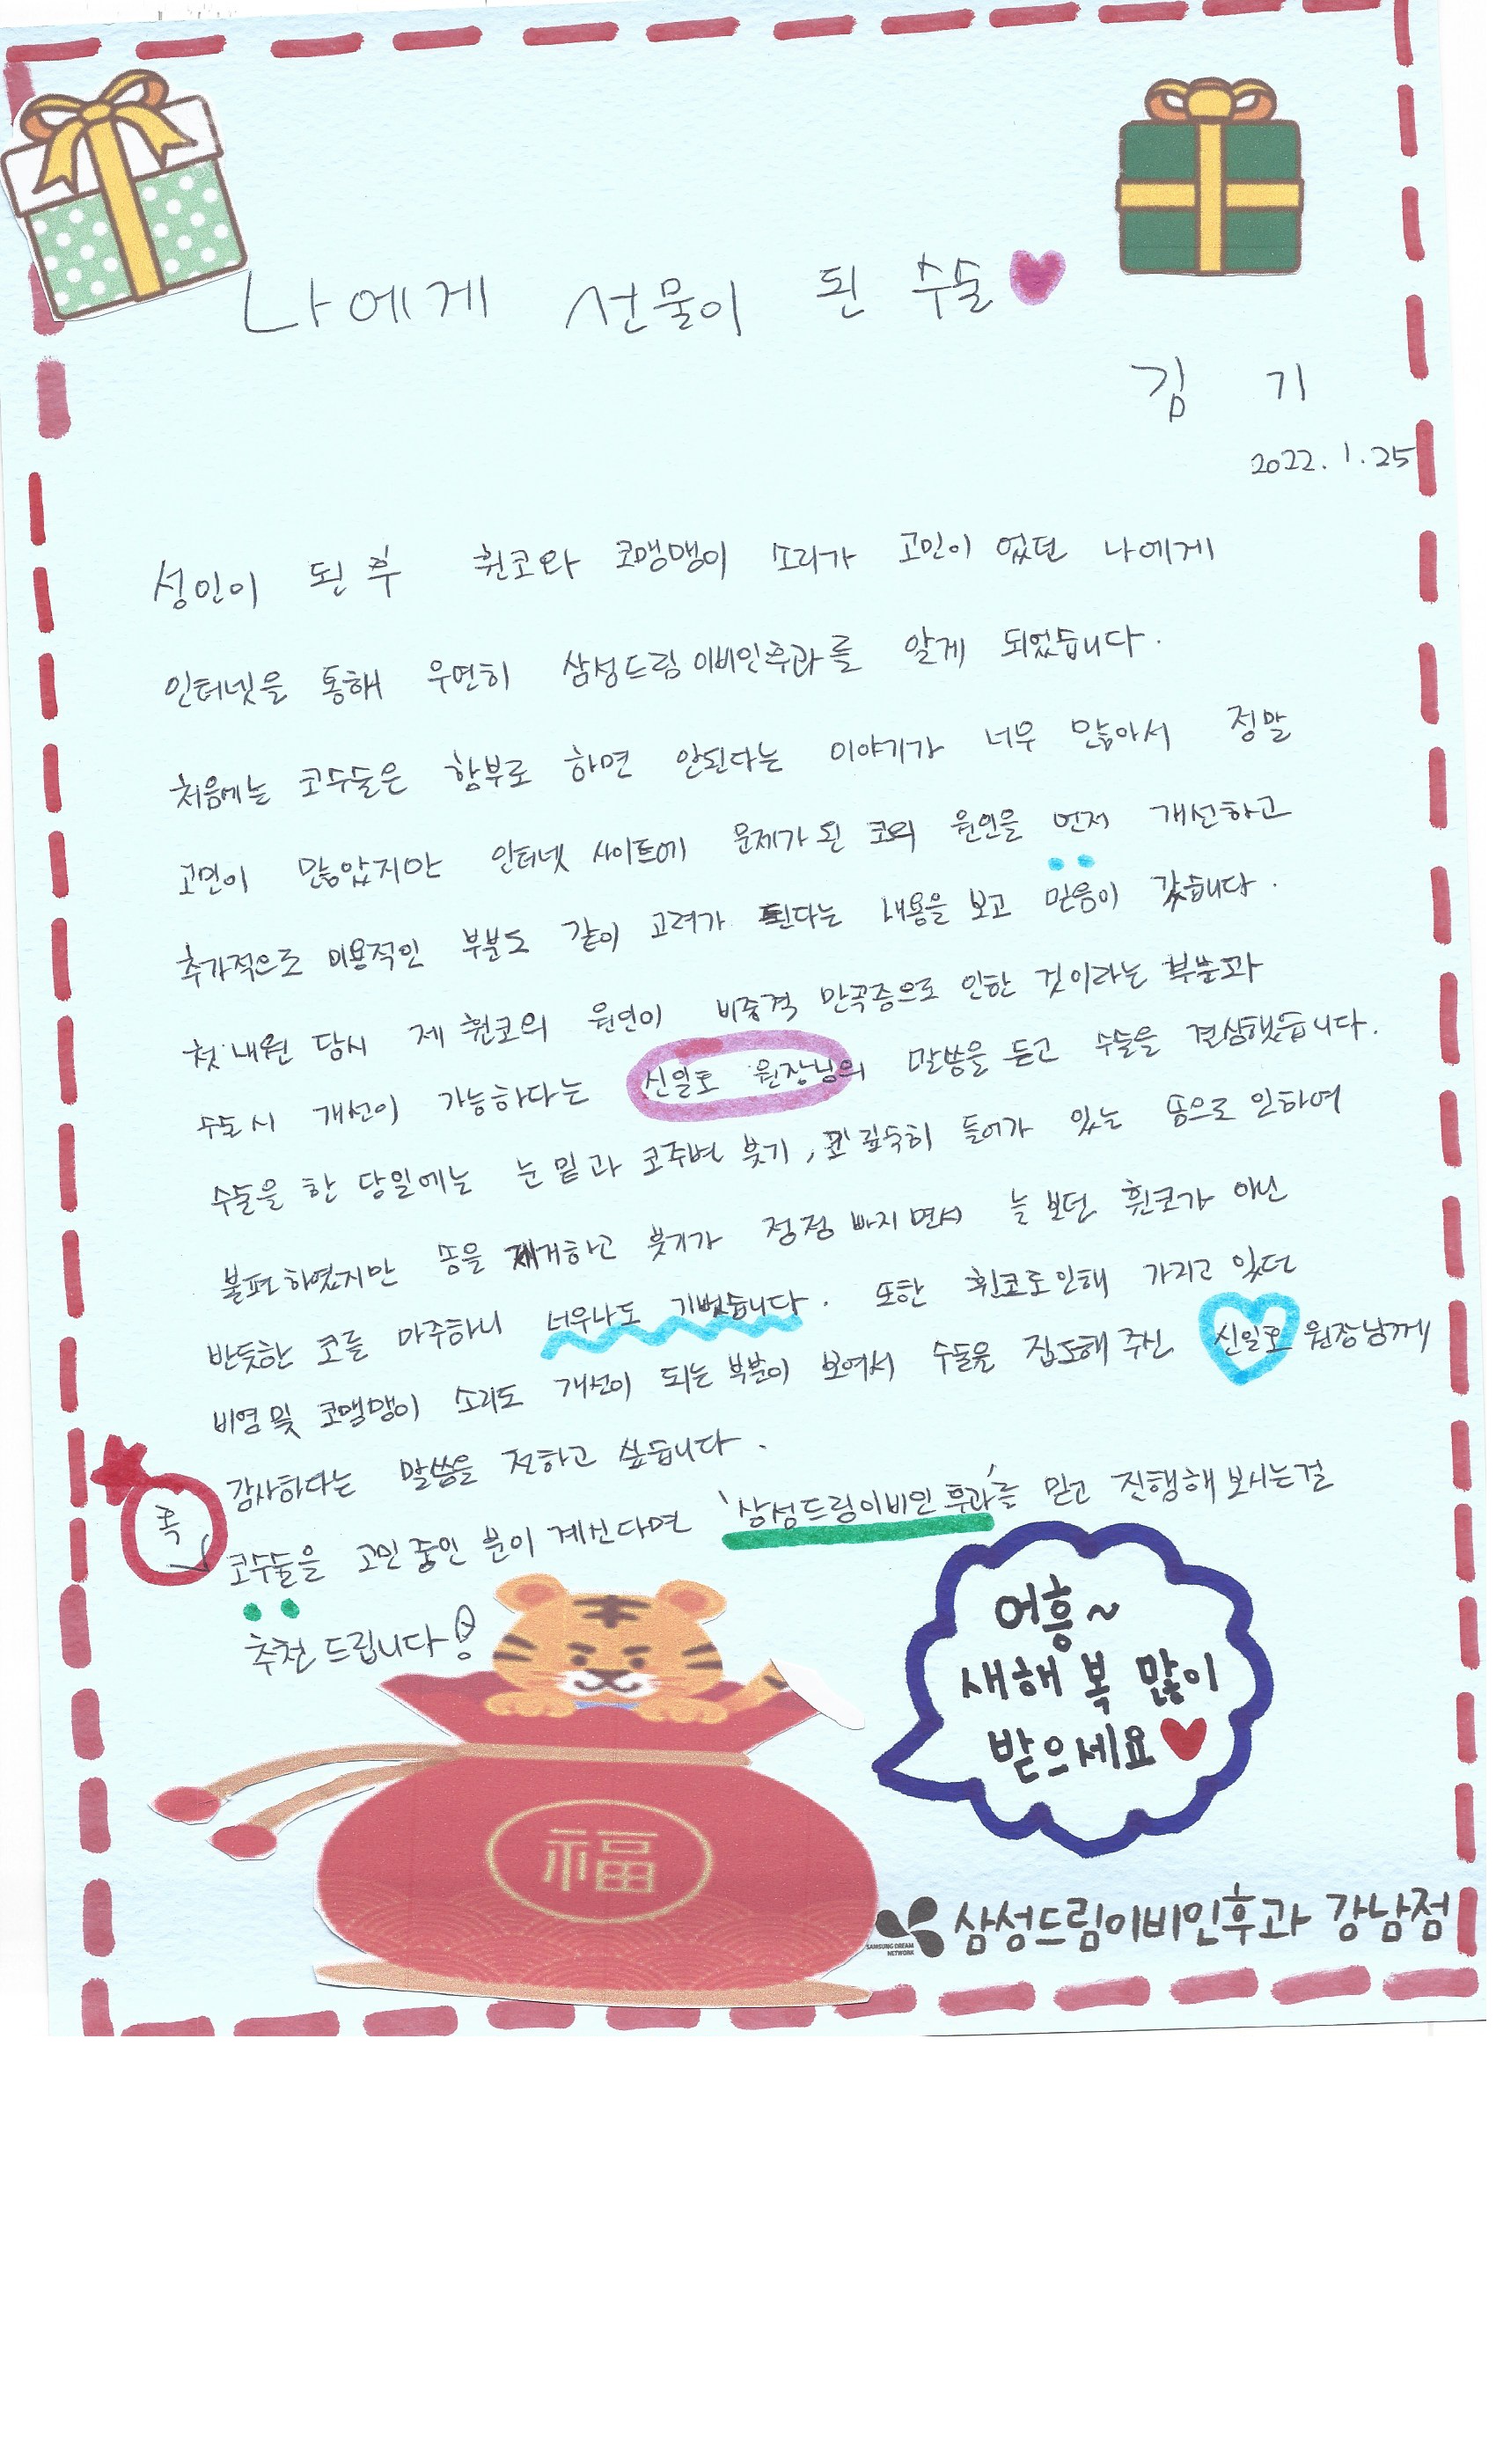 나에게 선물이 된 수술
김 기
2022.1.25
성인이 된 후 휜코와 코맹맹이 소리가 고민이 었던 나에게
인터넷을 통해 우연히 삼성드림이비인후과를 알게 되었습니다.
처음에는 코수술은 함부로 하면 안된다는 이야기가 너무 많아서 정말
고민이 많았지만 인터넷 사이트에 문제가 된 코의 원인을 먼저 개선하고
추가적으로 미용적인 부분도 같이 고려가 된다는 내용을 보고 믿음이 갔습니다.
첫 내원 당시 제 휜코의 원인이 비중격 만곡증으로 인한 것이라는 부분과
수술시 개선이 가능하다는 신일호 원장님의 말씀을 듣고 수술을 결심했습니다.
수술을 한 당일에는 눈 밑과 코주변 붓기, 코 깊숙히 들어가 있는 솜으로 인하여
불편하였지만 솜을 제거하고 붓기가 점점 빠지면서 늘 보던 휜코가 아닌
반듯한 코를 마주하니 너무나도 기뻤습니다. 또한 휜코로인해 가지고 있던
비염 및 코맹맹이 소리도 개선이 되는 부분이 보여서 수술을 집도해 주신 신일호 원장님께
감사하다는 말씀을 전하고 싶습니다.
혹 코수술을 고민 중인 분이 계신다면 '삼성드림이비인후과'를 믿고 진행해 보시는걸
추천 드립니다!
어흥~
새해 복 많이
받으세요
福
SAMSUNG DREAM
NETWORK
삼성드림이비인후과 강남점